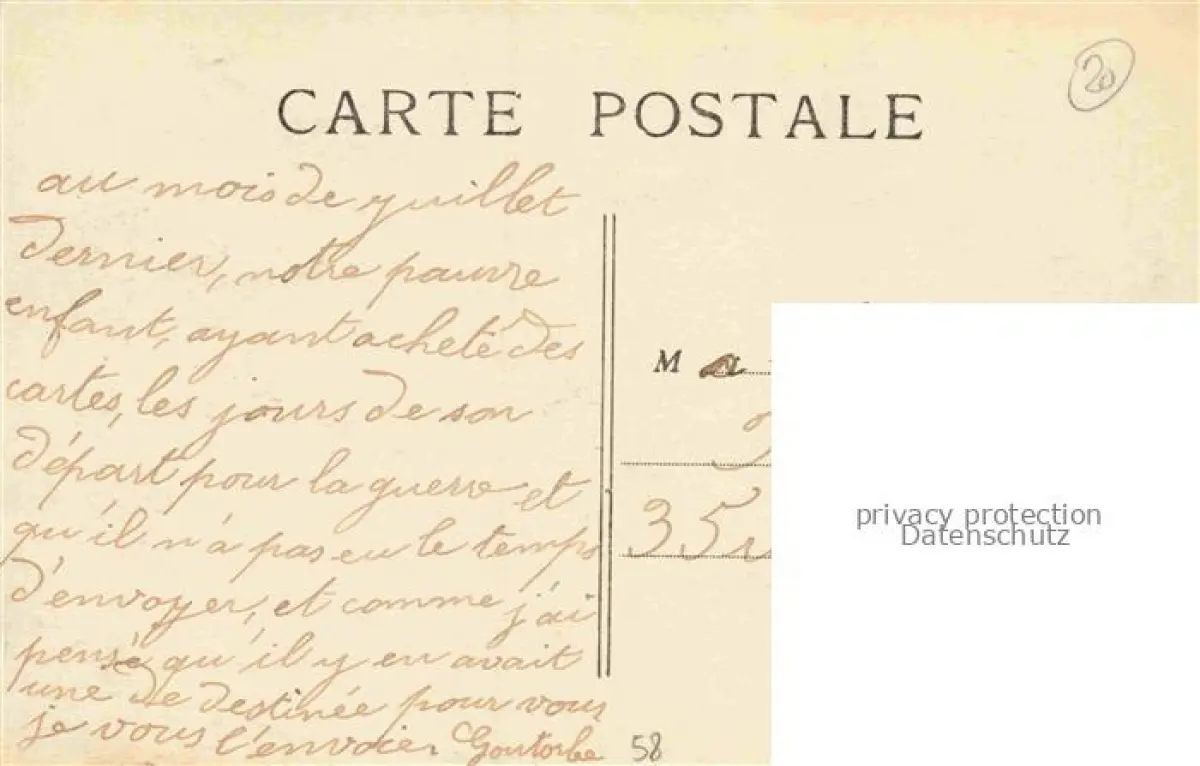 20
CARTE POSTALE
au mois de juillet
dernier, notre pauvre
enfant, ayant acheté des
cartes, les jours de son
départ pour la guerre et
qu'il n'a pas eu le temps
d'envoyer, et comme j'ai
pensé qu'il y en avait
une de destinée pour vous
je vous l'envoier Goutorbe
M
35
58
privacy protection
Datenschutz